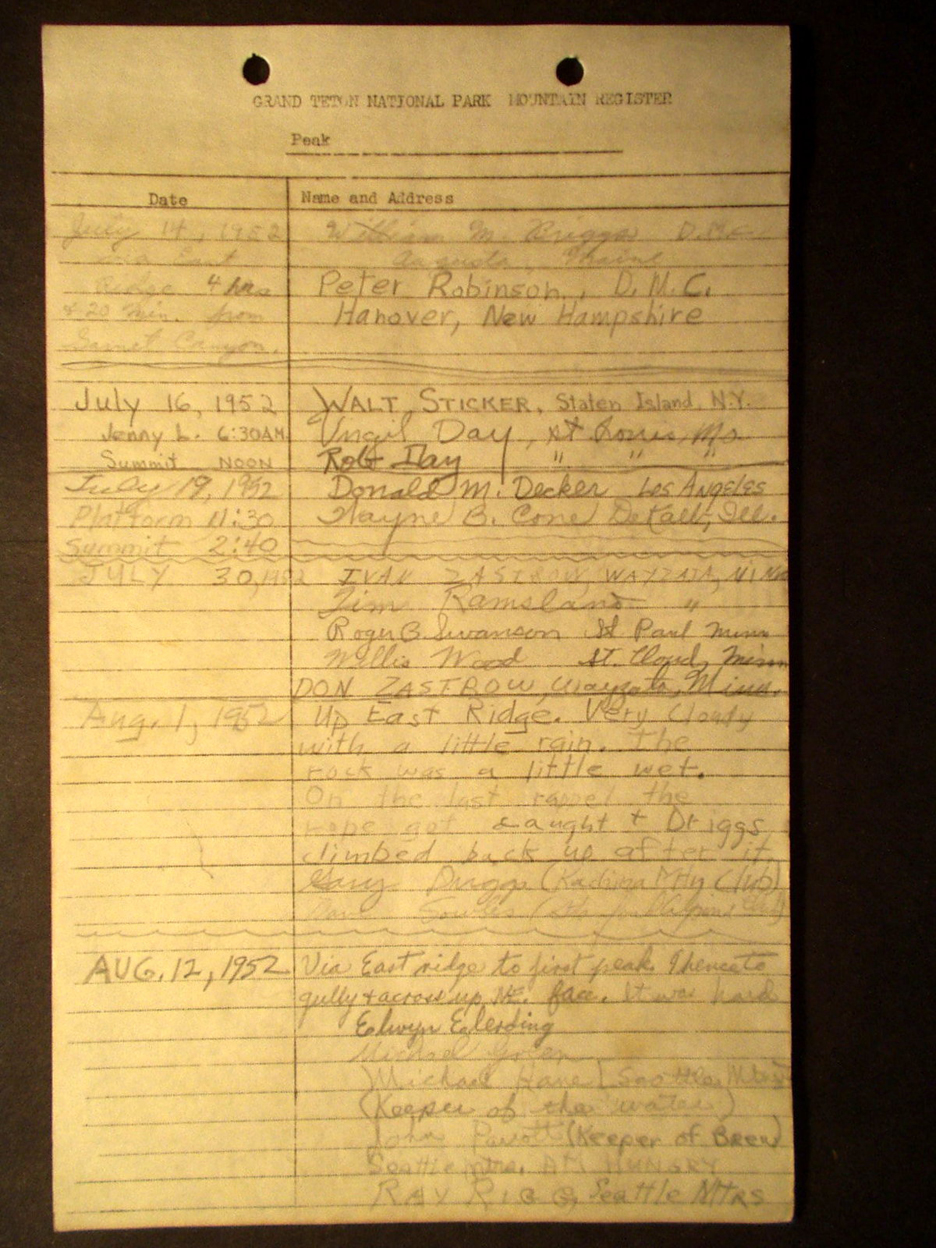 GRAND TETON NATIONAL PARK MOUNTAIN REGISTER
Peak
Date Name and Address
July 14, 1952 William M. Briggs D.M.C.
via East Augusta, Maine
Ridge 4 hrs Peter Robinson, D.M.C.
& 20 min. from Hanover, New Hampshire
Garnet Canyon.
July 16, 1952 WALT STICKER, Staten Island, N.Y.
Jenny L. 6:30AM Virgil Day, St Louis, Mo
Summit NOON Day " " "
July 19, 1952 Donald M. Decker Los Angeles
Platform 11:30 Wayne B. Cone DeKalb, Ill.
Summit 2:40
JULY 30, 1952 IVAN ZASTROW, WAYZATA, MINN
Jim Ramsland "
Roger B. Swanson St Paul Minn
Willis Wood St. Cloud, Minn
DON ZASTROW, Wayzata, Minn.
Aug. 1, 1952 Up East Ridge. Very Cloudy
with a little rain. The
rock was a little wet.
On the last rappel the
rope got caught + Driggs
climbed back up after it.
Gary Driggs (Kachina Mtn Club)
AUG. 12, 1952 Via East ridge to first peak, thence to
gully + across up NE. face. It was hard
Elwyn Elerding
Michael
Michael Hane [Seattle Mtrs]
(Keeper of the water)
John Parrott (Keeper of Brew)
Seattle mtrs. AM HUNGRY
RAY RIGG, Seattle MTRS